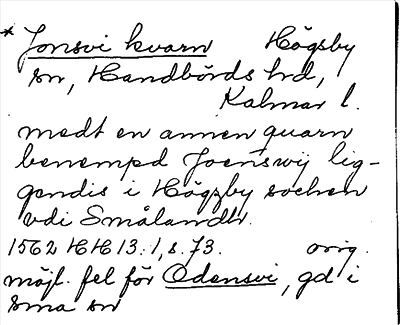 * Jonsvi kvarn Högsby
sn, Handbörds hd,
Kalmar l.
medt en annen quarn
benempd Joenswij lig-
gendis i Högzby sochen
vdi Smålandh.
1562 HH 13:1, s. 73. orig.
möjl. fel för Odensvi, gd i
sma sn